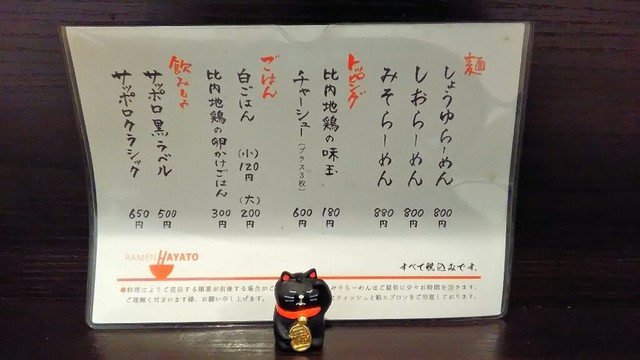 麺
しょうゆらーめん 800円
しおらーめん 800円
みそらーめん 880円
トッピング
比内地鶏の味玉 180円
チャーシュー(プラス3枚) 600円
ごはん
白ごはん (小)120円 (大)200円
比内地鶏の卵かけごはん 300円
飲みもの
サッポロ黒ラベル 500円
サッポロクラシック 650円
RAMEN HAYATO
すべて税込みです。
●料理によりご提供する順番が前後する場合がご
みそらーめんはご提供に少々お時間を頂きます。
ご理解くださいます様、お願い申し上げます。
ティッシュと紙エプロンをご用意しております。